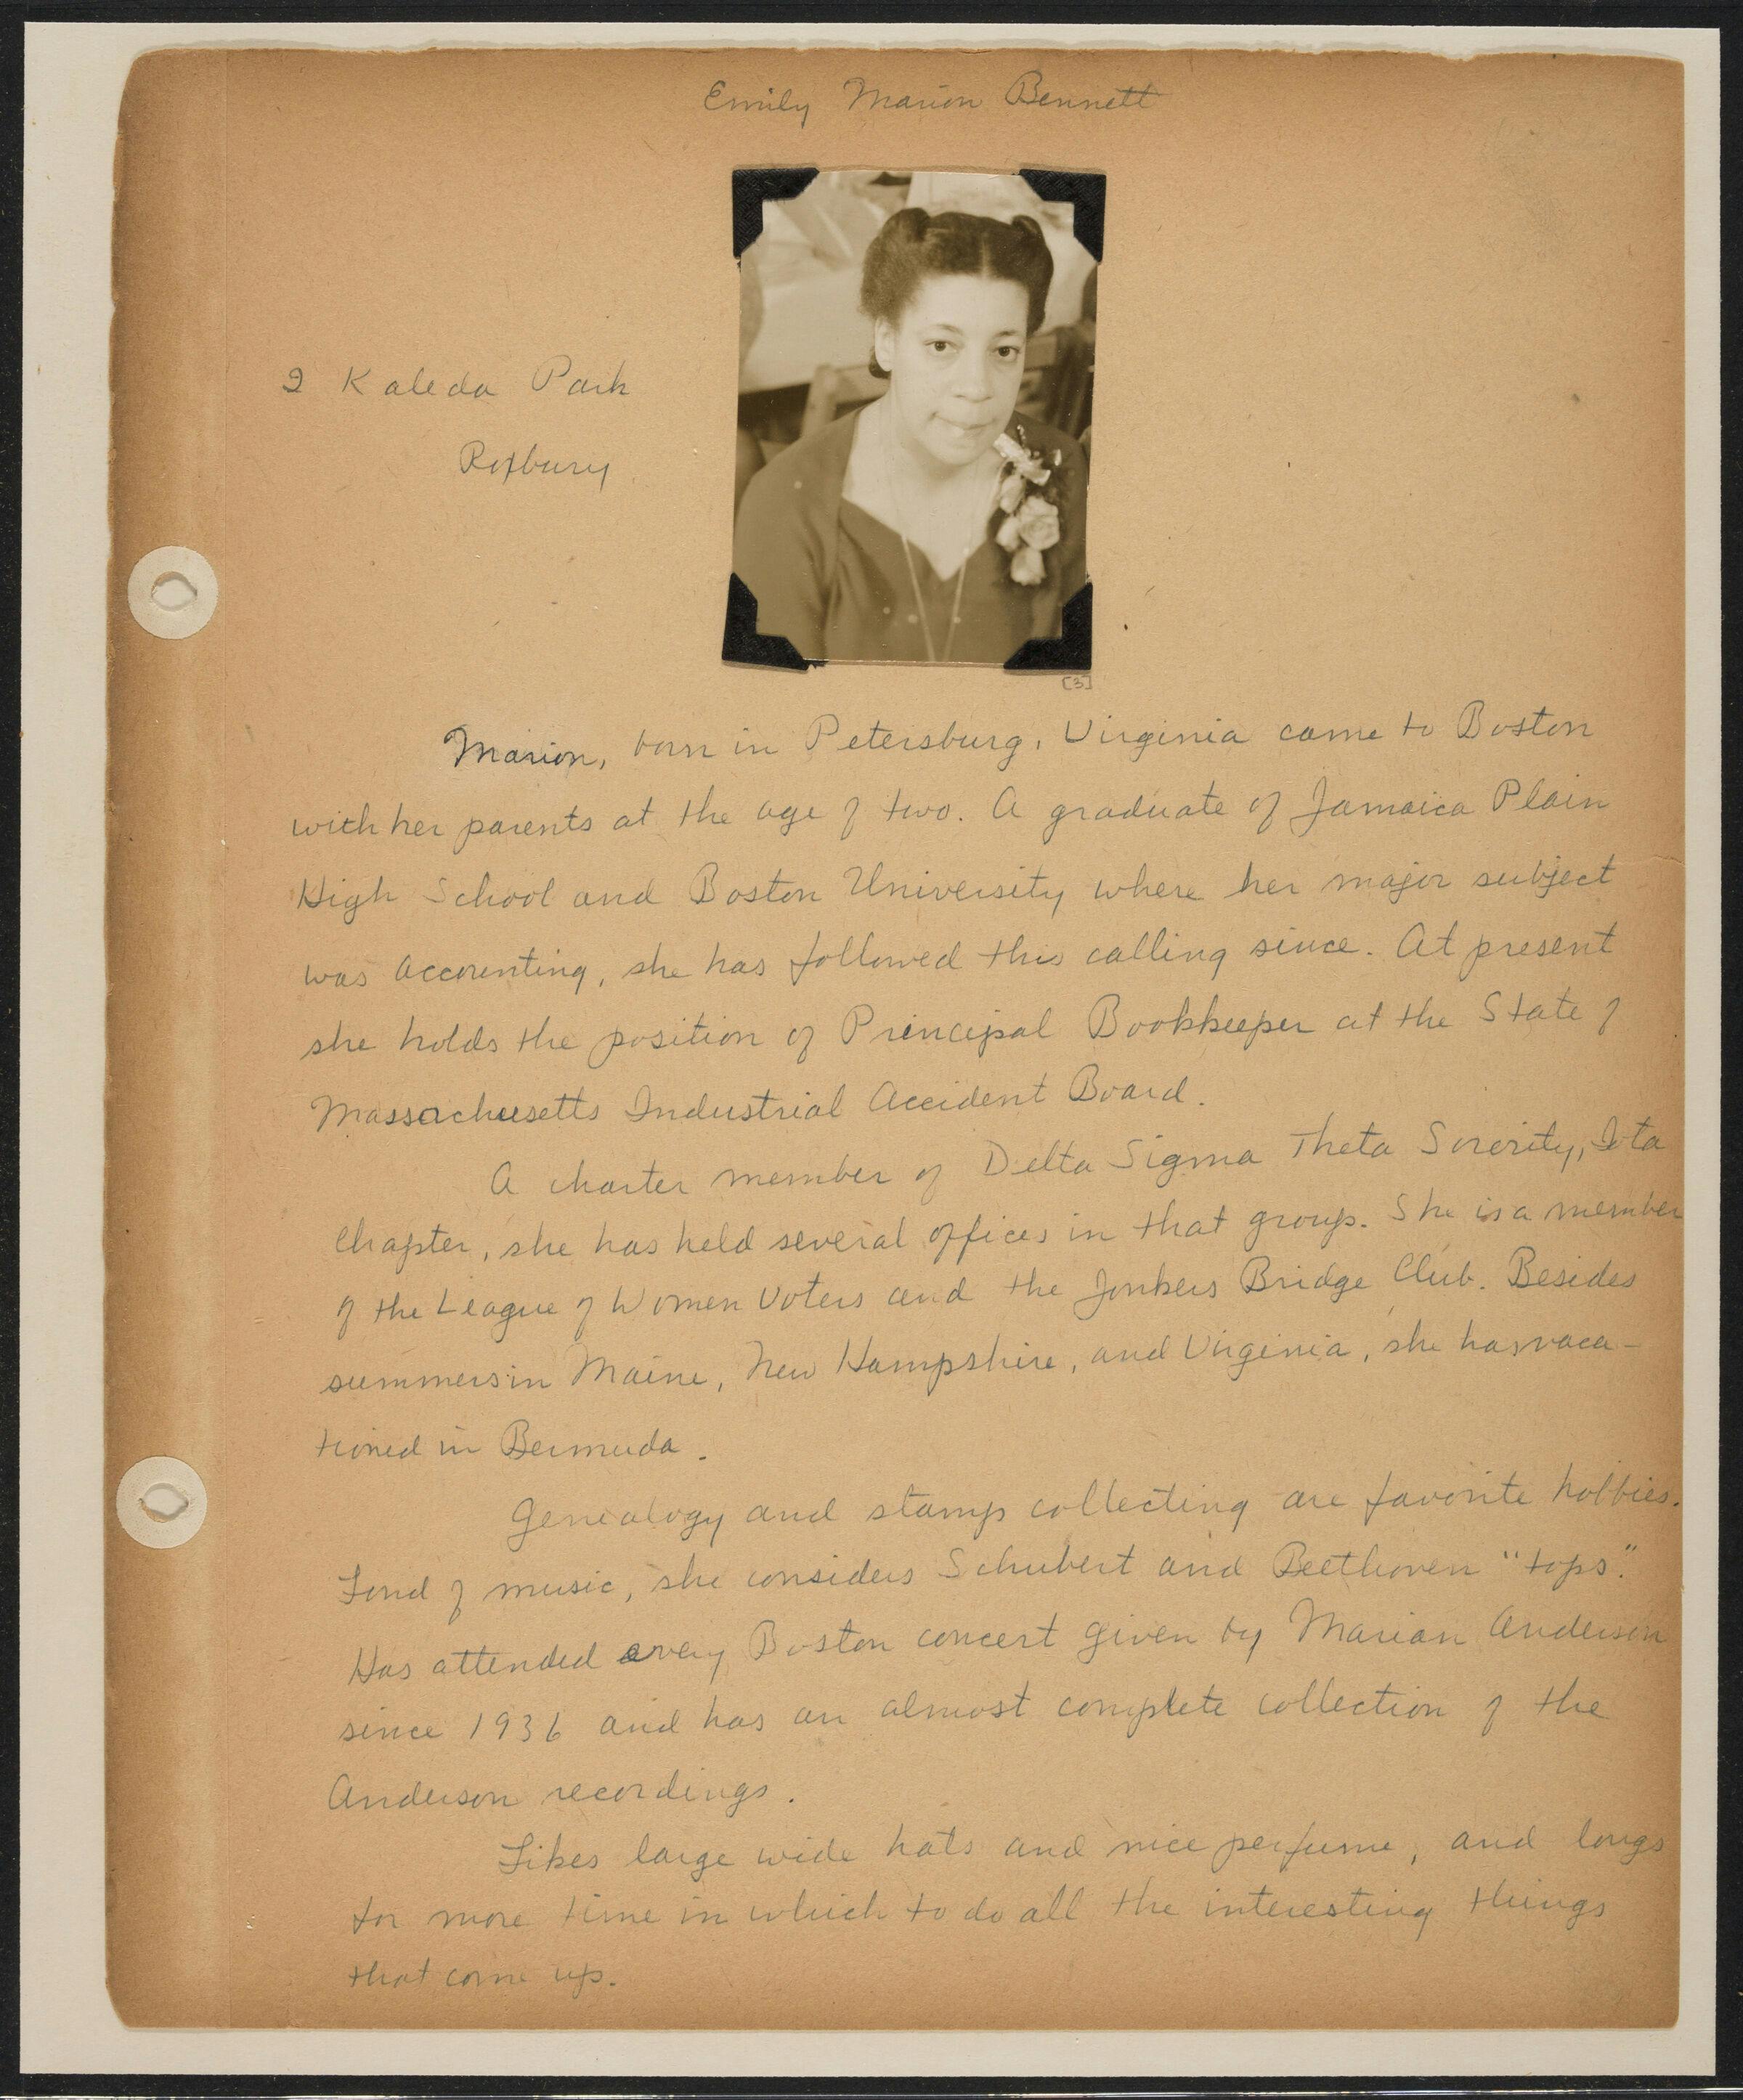 Emily Marion Bennett
2 Kaleda Park
Roxbury
[3]
Marion, born in Petersburg, Virginia came to Boston
with her parents at the age of two. A graduate of Jamaica Plain
High School and Boston University where her major subject
was Accounting, she has followed this calling since. At present
she holds the position of Principal Bookkeeper at the State of
Massachusetts Industrial Accident Board.
A charter member of Delta Sigma Theta Sorority, Iota
Chapter, she has held several offices in that group. She is a member
of the League of Women Voters and the Jonkers Bridge Club. Besides
summers in Maine, New Hampshire, and Virginia, she has vaca-
tioned in Bermuda.
Genealogy and stamp collecting are favorite hobbies.
Fond of music, she considers Schubert and Beethoven "tops".
Has attended every Boston concert given by Marian Anderson
since 1936 and has an almost complete collection of the
Anderson recordings.
Likes large wide hats and nice perfume, and longs
for more time in which to do all the interesting things
that come up.